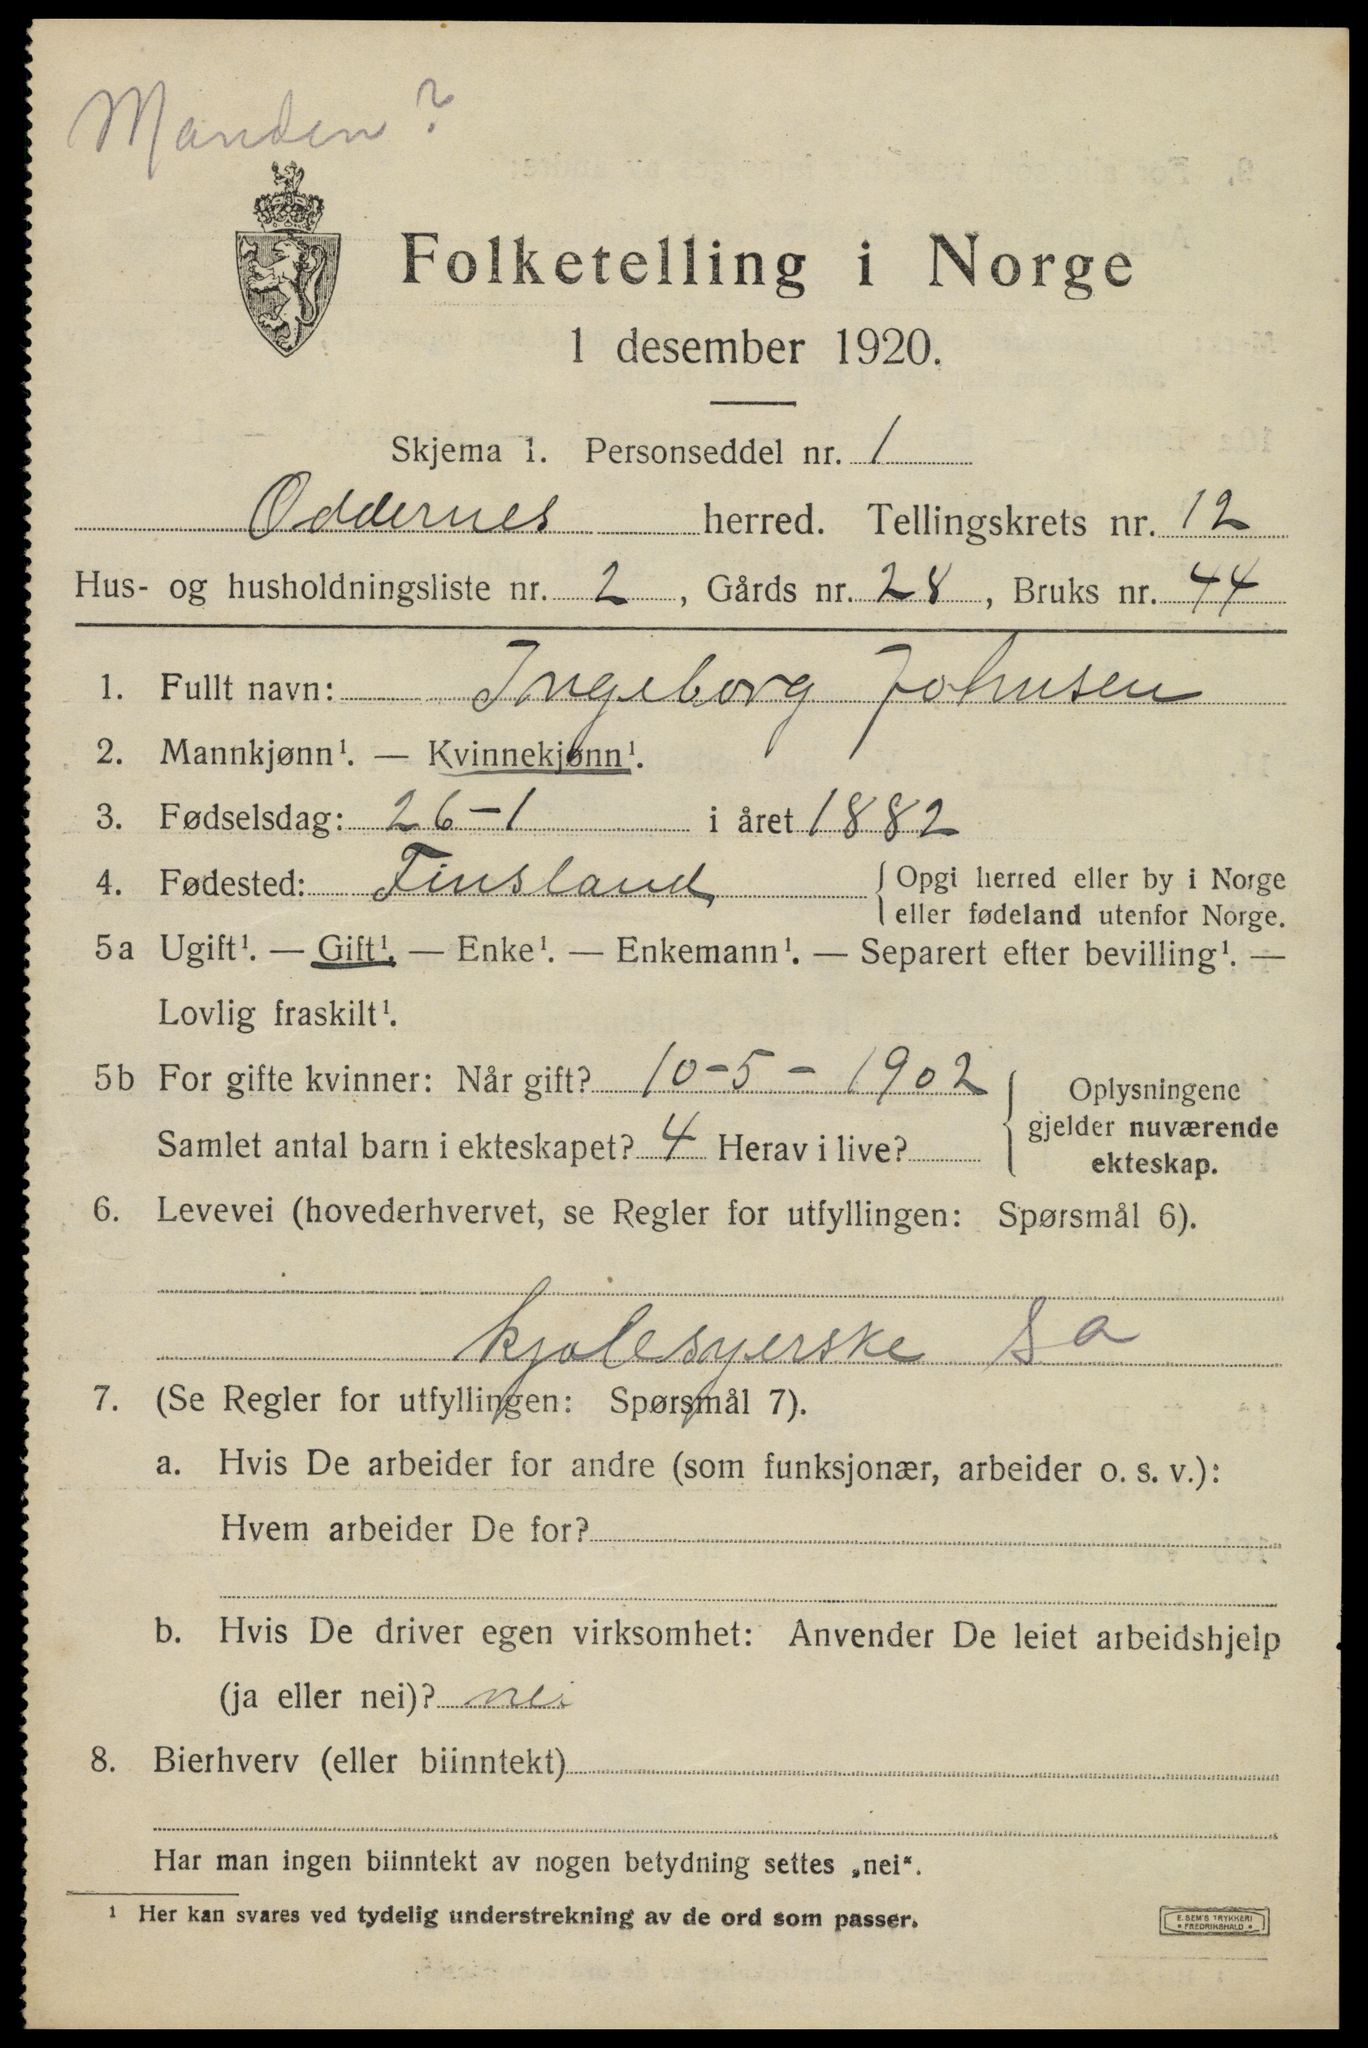 Manden?
Folketelling i Norge
1 desember 1920.
Skjema 1. Personseddel nr. 1
Oddernes herred. Tellingskrets nr. 12
Hus- og husholdningsliste nr. 2, Gårds nr. 28, Bruks nr. 44
1. Fullt navn: Ingeborg Johnsen
2. Mannkjønn¹. — Kvinnekjønn¹.
3. Fødselsdag: 26-1 i året 1882
4. Fødested: Finsland { Opgi herred eller by i Norge
eller fødeland utenfor Norge.
5a Ugift¹. — Gift¹. — Enke¹. — Enkemann¹. — Separert efter bevilling¹. —
Lovlig fraskilt¹.
5b For gifte kvinner: Når gift? 10-5-1902 { Oplysningene
gjelder nuværende
ekteskap.
Samlet antal barn i ekteskapet? 4 Herav i live?
6. Levevei (hovederhvervet, se Regler for utfyllingen: Spørsmål 6).
kjolesyerske Sa
7. (Se Regler for utfyllingen: Spørsmål 7).
a. Hvis De arbeider for andre (som funksjonær, arbeider o. s. v.):
Hvem arbeider De for?
b. Hvis De driver egen virksomhet: Anvender De leiet arbeidshjelp
(ja eller nei)? nei
8. Bierhverv (eller biinntekt)
Har man ingen biinntekt av nogen betydning settes „nei“.
¹ Her kan svares ved tydelig understrekning av de ord som passer.
E. SEM'S TRYKKERI
• FREDRIKSHALD •